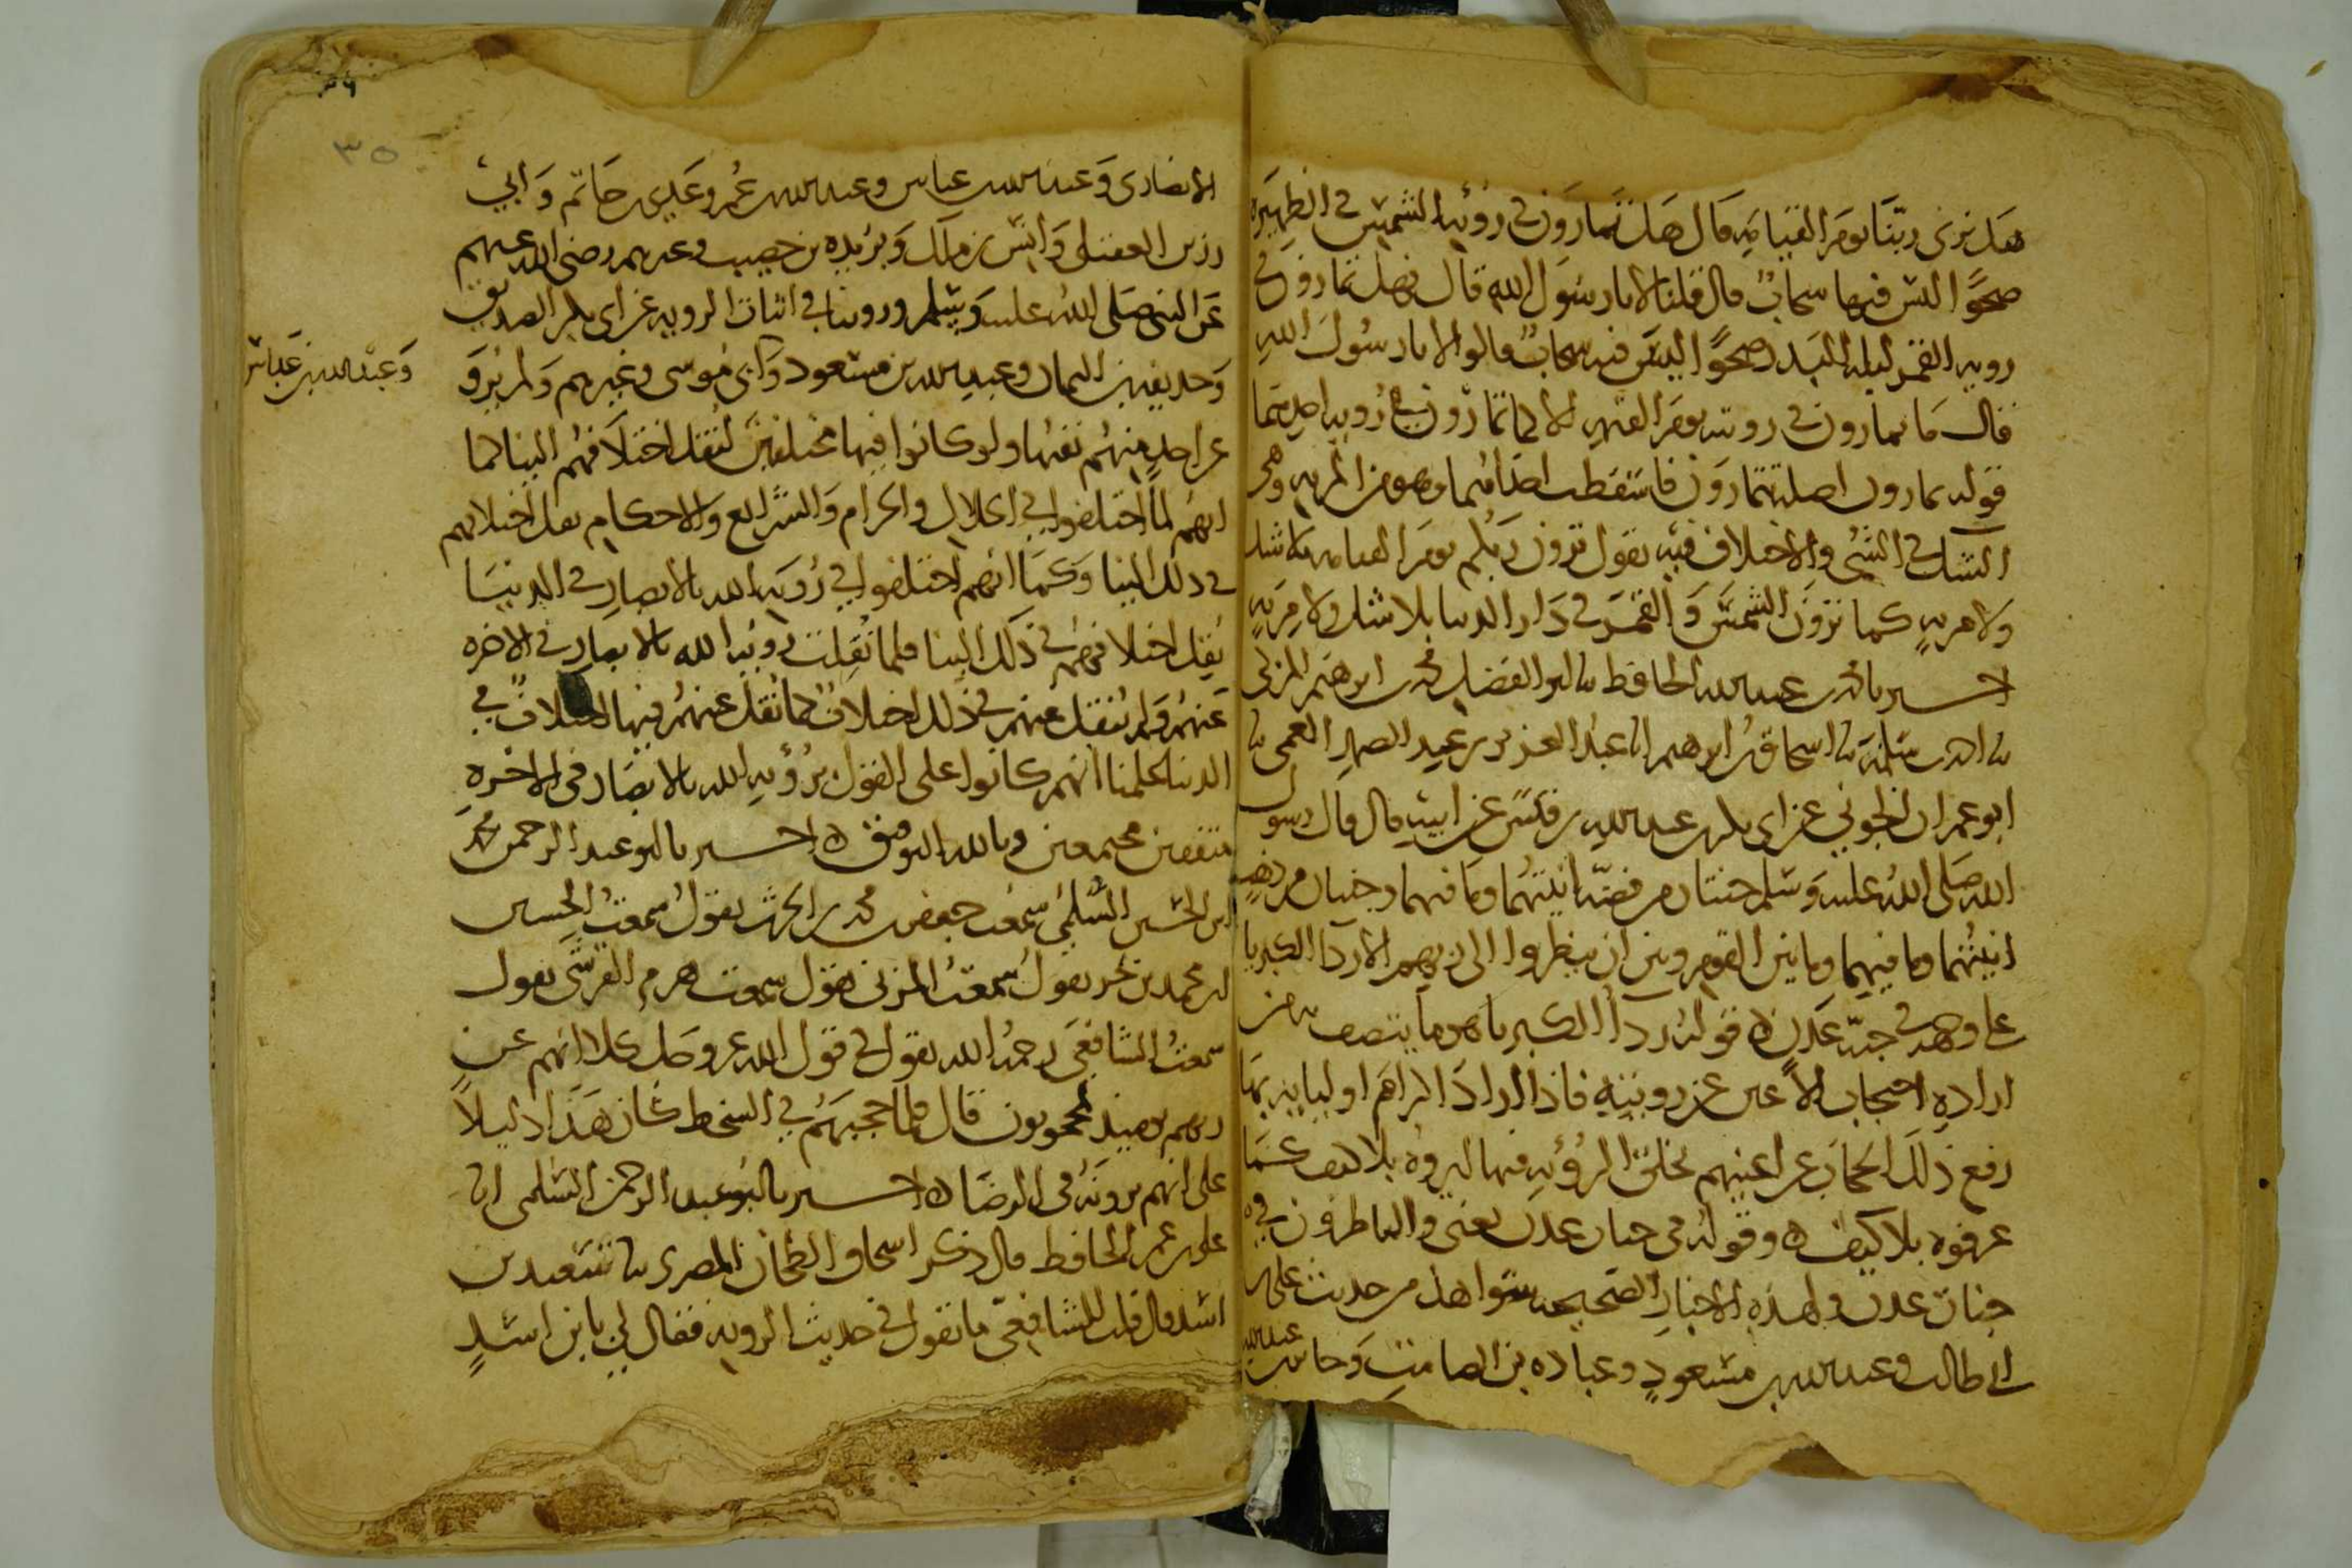 هل نرى ربنا يوم القيامة قال هل تمارون في رؤية الشمس في الظهيرة
صحوا ليس فيها سحاب قال قلنا لا يا رسول الله قال فهل تمارون في
رويه القمر ليلة البدر صحوا ليس فيه سحاب قالوا لا يا رسول الله
قال ما تمارون في رويته يوم القيمة الا كما تمارون في رويه احدهما
قوله تمارون اصله تتمارون فاسقطت احداهما وهو من المريه وهي
الشك في الشي والاختلاف فيه يقول ترون ربكم يوم القيامه بلا شك
ولا مريه كما ترون الشمس والقمر في دار الدنيا بلا شك ولا مريه
اخبرنا محمد بن عبد الله الحافظ نا ابو الفضل محمد بن ابرهيم المزكي
نا احمد بن سلمة نا اسحاق بن ابرهيم انا عبد العزيز بن عبد الصمد العمي نا
ابو عمران الجوني عن ابي بكر بن عبد الله بن قيس عن ابيه قال قال رسول
الله صلى الله عليه وسلم جنتان من فضه انيتهما وما فيهما وجنتان من ذهب
انيتهما وما فيهما وما بين القوم وبين ان ينظروا الى ربهم الا ردا الكبريا
على وجهه في جنة عدن ه قوله ردآ الكبريا هو ما يتصف به من
اراده احتجاب الاعين عن رويته فاذا اراد اكرام اوليايه بها
رفع ذلك الحجاب عن اعينهم بخلق الرؤيه فيها ليروه بلا كيف كما
عرفوه بلا كيف ه وقوله في جنات عدن يعني والناظرون في
جنات عدن ولهذه الاخبار الصحيحه شواهد من حديث علي بن
ابي طالب وعبد الله بن مسعود وعباده بن الصامت وجابر بن عبد الله
الانصاري وعبد الله بن عباس وعبد الله بن عمر وعدي بن حاتم وابي
رزين العقيلي وانس بن ملك وبريده بن حصيب وغيرهم رضي الله عنهم
عن النبي صلى الله عليه وسلم وروينا في اثبات الرويه عن ابي بكر الصديق
وحذيفه بن اليمان وعبد الله بن مسعود وابي موسى وغيرهم ولم يرو
وعبد الله بن عباس
عن احد منهم نفيها ولو كانوا فيها مختلفين لنقل اختلافهم الينا كما
انهم لما اختلفوا في الحلال والحرام والشرايع والاحكام نقل اختلافهم
في ذلك الينا وكما انهم اختلفوا في رؤيه الله بالابصار في الدنيا
نقل اختلافهم في ذلك الينا فلما نقلت رويه الله بالابصار في الاخره
عنهم ولم ينقل عنهم في ذلك اختلاف كما نقل عنهم فيها اختلاف في
الدنيا علمنا انهم كانوا على القول برؤيه الله بالابصار في الاخره
متفقين مجتمعين وبالله التوفيق ه اخبرنا ابو عبد الرحمن محمد
ابن الحسين السلمي سمعت جعفر بن محمد بن الحرث يقول سمعت الحسين
بن محمد بن بحر يقول سمعت المزني يقول سمعت هرم القرشي يقول
سمعت الشافعي رحمه الله يقول في قول الله عز وجل كلا انهم عن
ربهم يوميذ لمحجوبون قال فلما حجبهم في السخط كان هذا دليلا
على انهم يرونه في الرضا ه اخبرنا ابو عبد الرحمن السلمي انا
علي بن عمر الحافظ قال ذكر اسحاق الطحان المصري نا سعيد بن
اسد قال قلت للشافعي ما تقول في حديث الرويه فقال لي يا بن اسد
٣٥